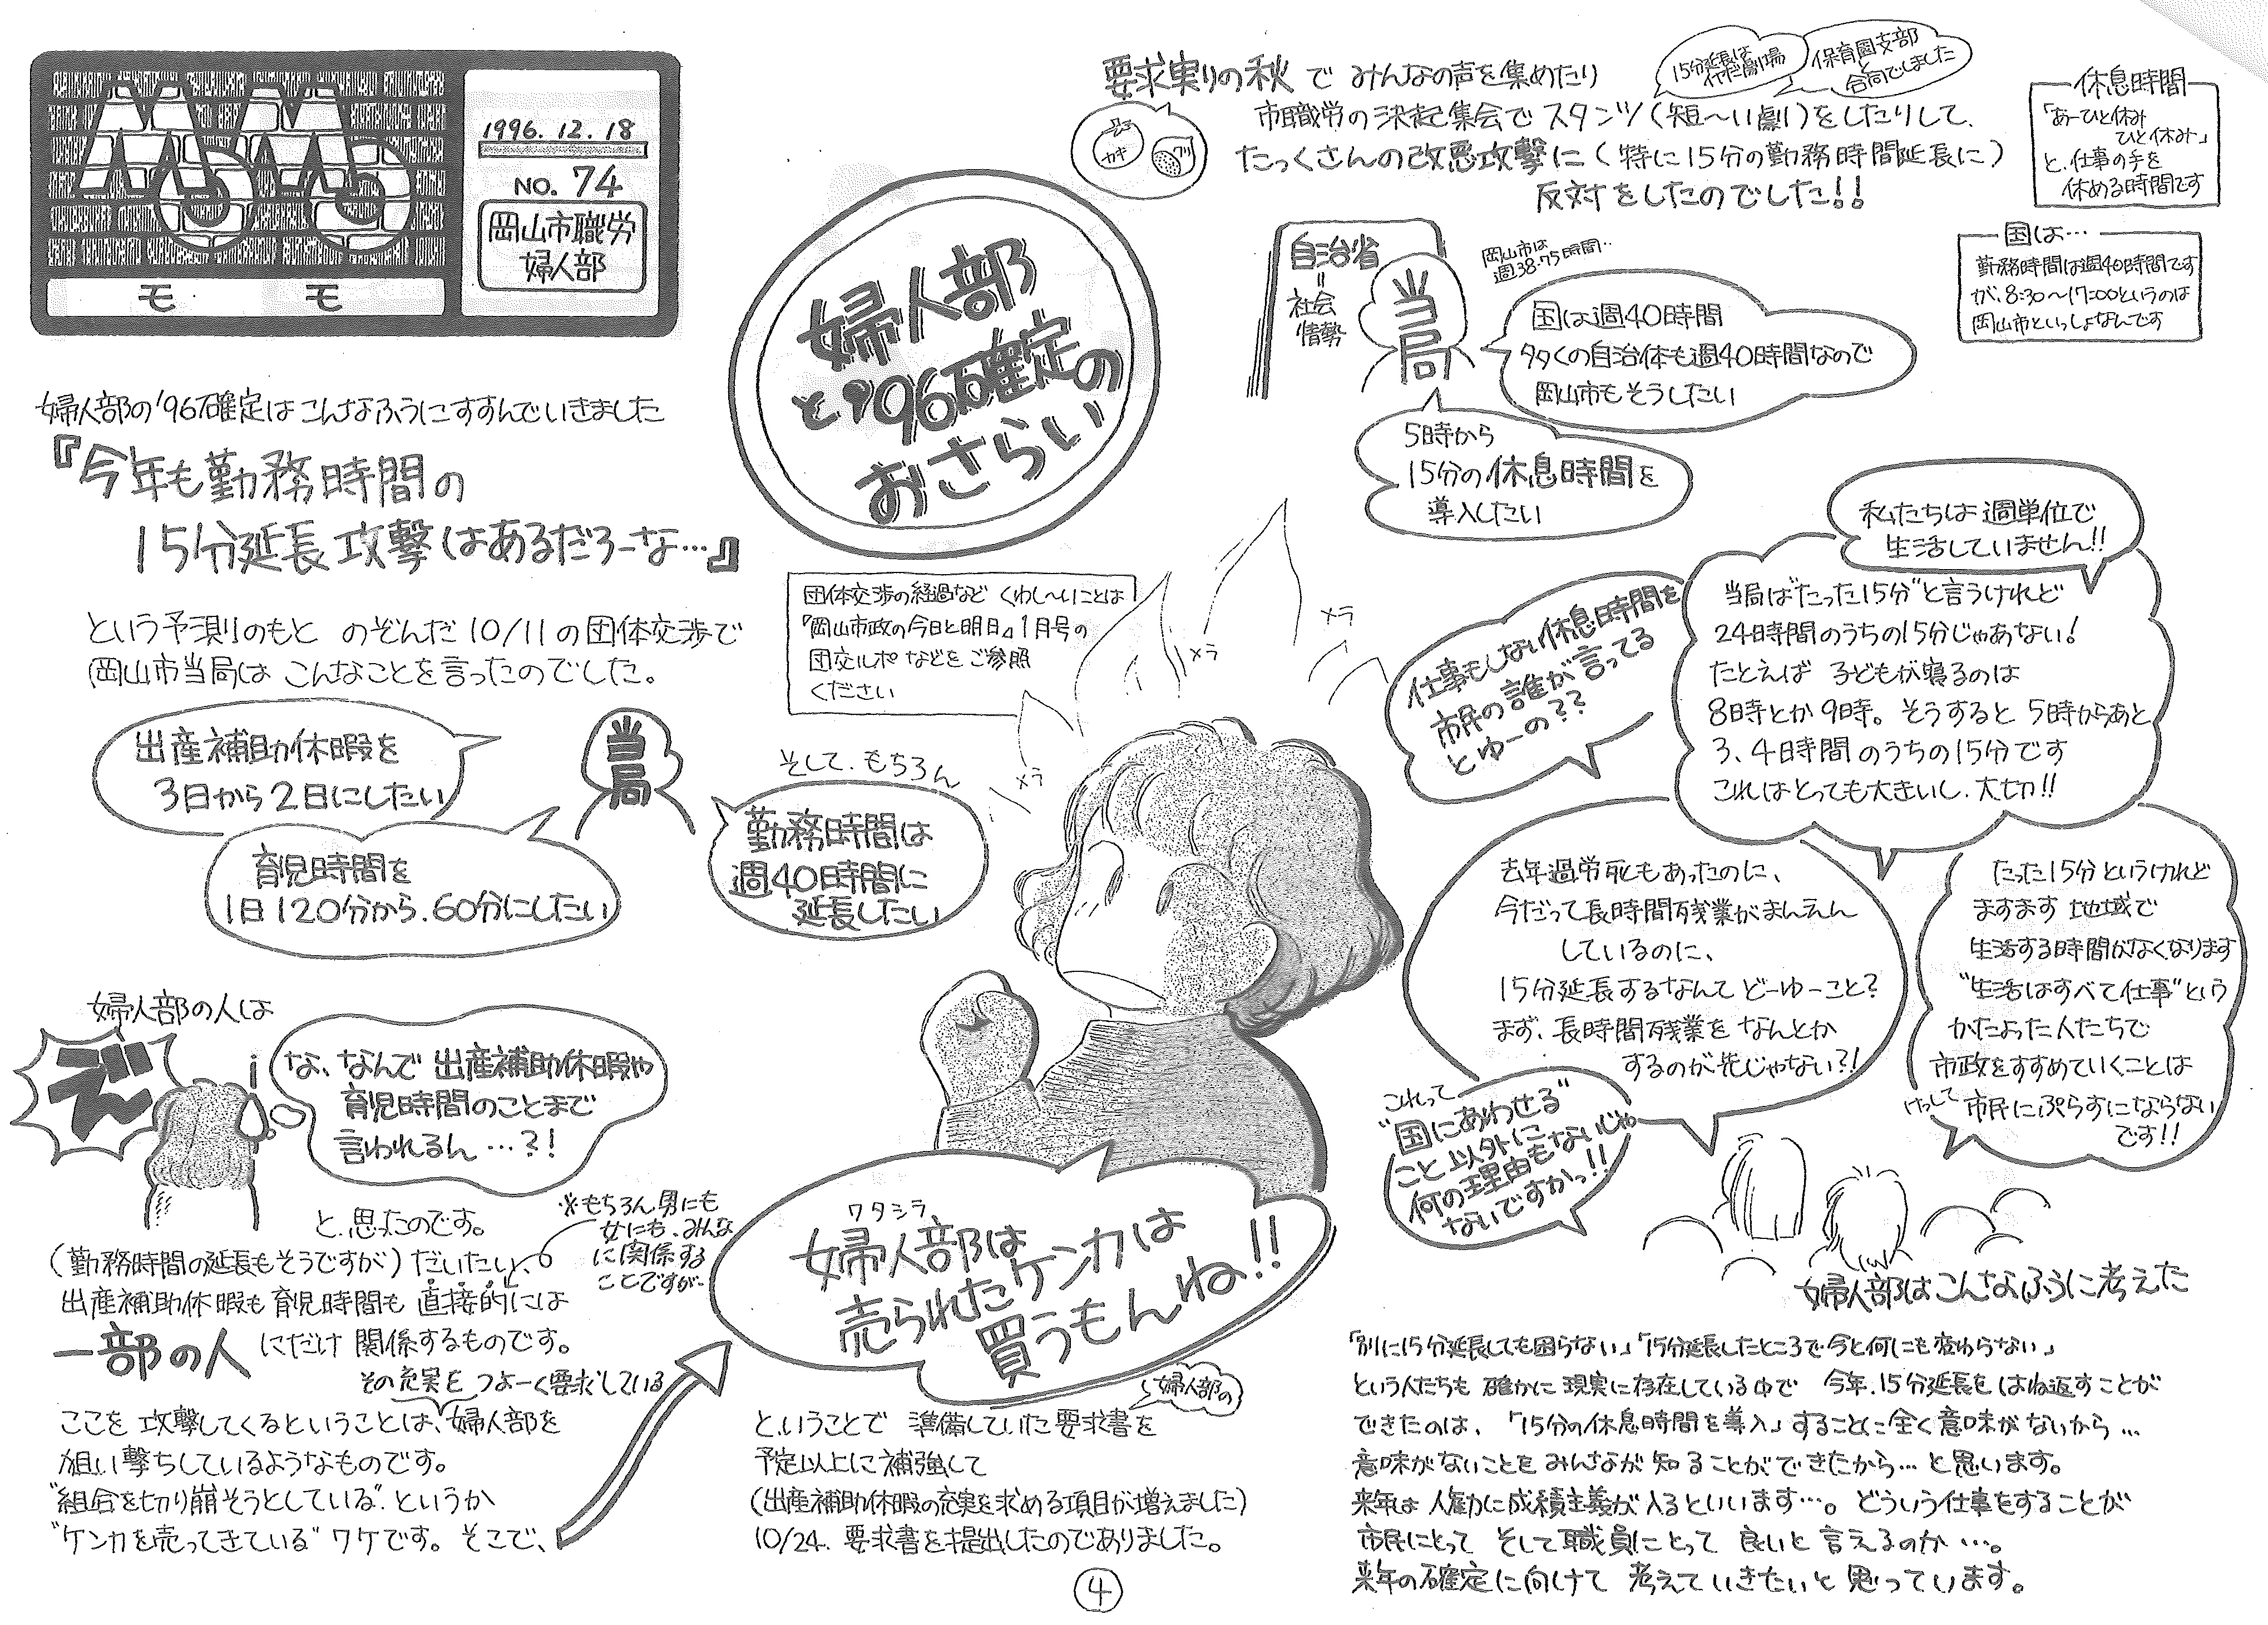 1996. 12. 18
NO. 74
岡山市職労
婦人部
モ モ
婦人部の'96確定はこんなふうにすすんでいきました
『今年も勤務時間の
15分延長攻撃はあるだろーな…』
という予測のもと のぞんだ10/11の団体交渉で
岡山市当局は こんなことを言ったのでした。
出産補助休暇を
3日から2日にしたい
当局
育児時間を
1日120分から、60分にしたい
そして、もちろん
勤務時間は
週40時間に
延長したい
婦人部の人は
え゛
な、なんで 出産補助休暇や
育児時間のことまで
言われるん…?!
と、思ったのです。
(勤務時間の延長もそうですが)だいたい、
※もちろん男にも
女にも、みんな
に関係する
ことですが…
出産補助休暇も育児時間も 直接的には
一部の人 にだけ 関係するものです。
その充実を つよーく要求している
ここを 攻撃してくるということは、婦人部を
狙い撃ちしているようなものです。
"組合を切り崩そうとしている"、というか
"ケンカを売ってきている" ワケです。そこで、
婦人部
と'96確定の
おさらい
団体交渉の経過など くわし〜いことは
『岡山市政の今日と明日』1月号の
団交ルポなどを ご参照
ください
メラ
メラ
メラ
ワタシラ
婦人部は
売られたケンカは
買うもんね!!
婦人部の
ということで 準備していた要求書を
予定以上に補強して
(出産補助休暇の充実を求める項目が増えました)
10/24、要求書を提出したのでありました。
④
要求実りの秋で みんなの声を集めたり
15分延長は
保育園支部
と
合同でしました
カキ
クリ
市職労の決起集会で スタンツ(短〜い劇)をしたりして、
たっくさんの改悪攻撃に(特に15分の勤務時間延長に)
反対をしたのでした!!
休息時間
「あーひと休み
ひと休み」
と、仕事の手を
休める時間です
国は…
勤務時間は週40時間です
が、8:30〜17:00というのは
岡山市といっしょなんです
自治省
=
社会
情勢
当局
岡山市は
週38.75時間…
国は週40時間
多くの自治体も週40時間なので
岡山市もそうしたい
5時から
15分の休息時間を
導入したい
私たちは週単位で
生活していません!!
仕事もしない休息時間を
市民の誰が言ってる
とゆーの??
当局は"たった15分"と言うけれど
24時間のうちの15分じゃあない!
たとえば 子どもが寝るのは
8時とか9時。そうすると 5時からあと
3、4時間のうちの15分です
これはとっても大きいし、大切!!
去年過労死もあったのに、
今だって長時間残業がまんえん
しているのに、
15分延長するなんて どーゆーこと?
まず、長時間残業を なんとか
するのが先じゃない?!
たった15分というけれど
ますます 地域で
生活する時間がなくなります
"生活はすべて仕事"という
かたよった人たちで
市政をすすめていくことは
けっして 市民にぷらすにならない
です!!
これって
"国にあわせる"
こと以外に
何の理由もないじゃ
ないですかっ!!
婦人部はこんなふうに考えた
「別に15分延長しても困らない」「15分延長したところで今と何にも変わらない」
という人たちも 確かに現実に存在している中で 今年、15分延長をはね返すことが
できたのは、「15分の休息時間を導入」することに全く意味がないから…
意味がないことを みんなが知ることができたから…と思います。
来年は 人勧に成績主義が入るといいます…。どういう仕事をすることが
市民にとって そして職員にとって 良いと言えるのか…。
来年の確定に向けて 考えていきたいと思っています。